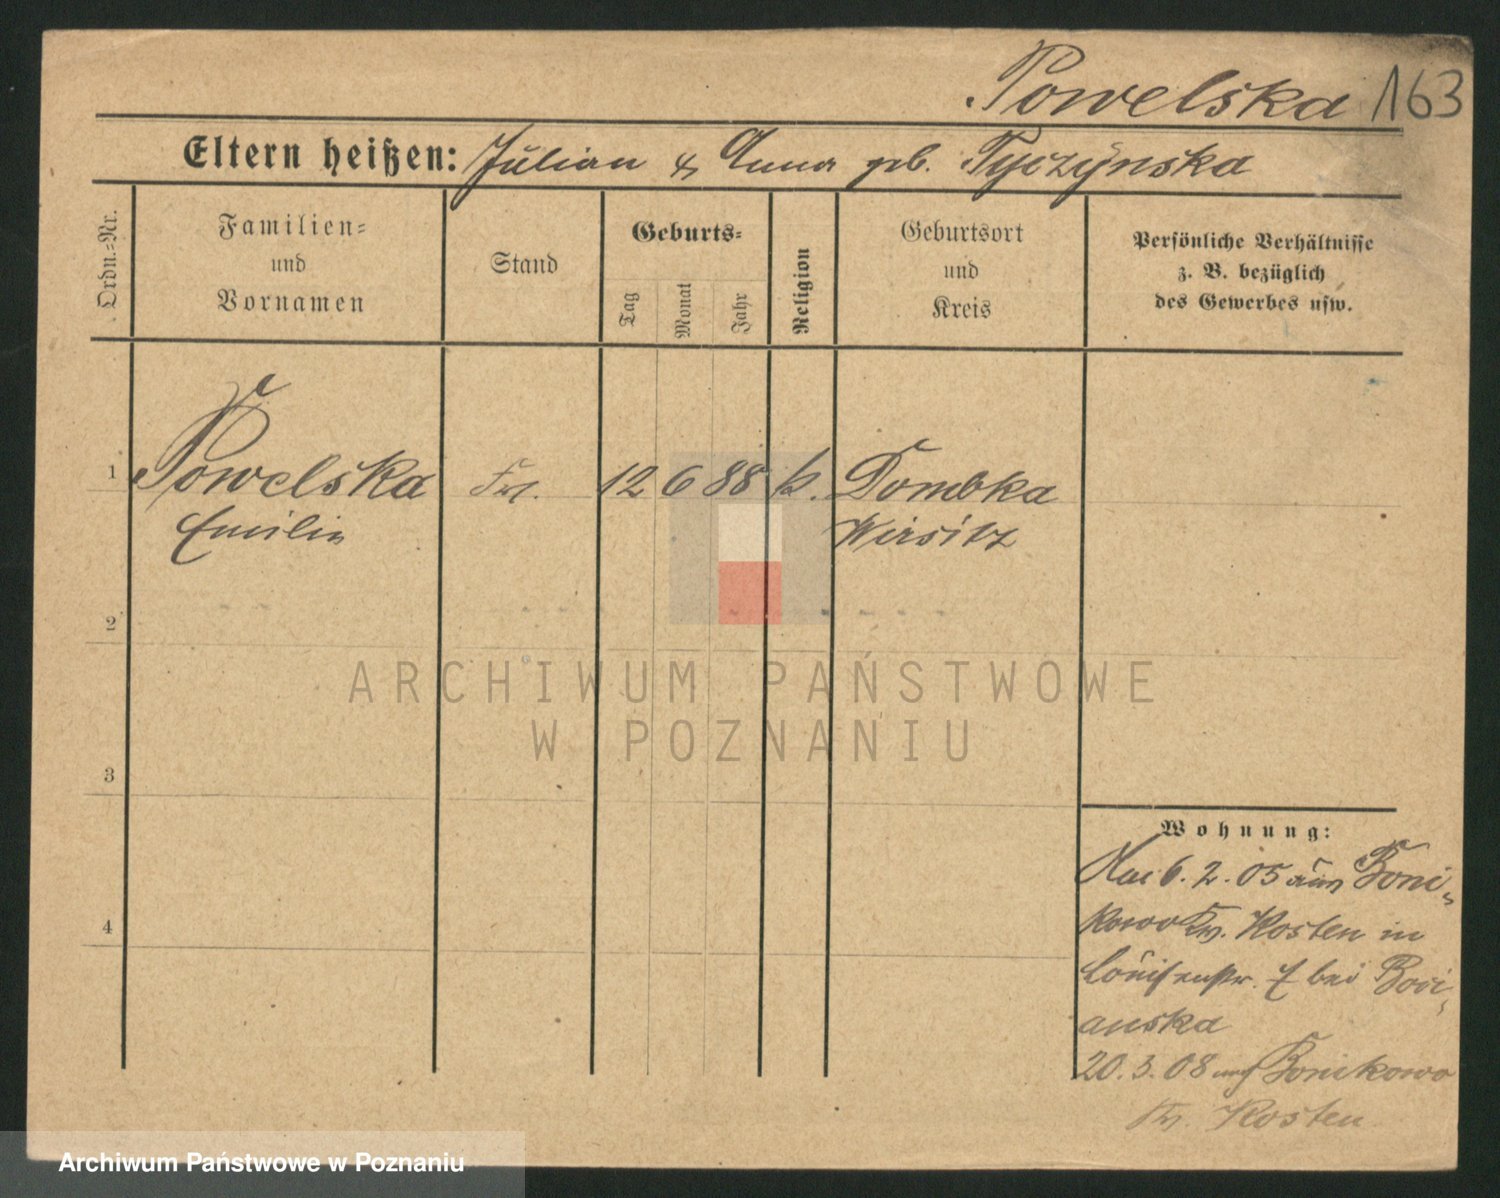 Powelska 163
Eltern heißen: Julian & Anna geb. Tyczynska
Ordn.=Nr.
Familien=
und
Vornamen
Stand
Geburts=
Tag
Monat
Jahr
Religion
Geburtsort
und
Kreis
Persönliche Verhältnisse
z. B. bezüglich
des Gewerbes usw.
1 Powelska Frl. 12 6 88 k. Dombka
Emilie Wirsitz
2
3
4
Wohnung:
6. 2. 05 aus Boni-
kowo Kr. Kosten in
Louisenstr. bei Boci-
anska
20. 3. 08 nach Bonikowo
Kr. Kosten
ARCHIWUM PAŃSTWOWE
W POZNANIU
Archiwum Państwowe w Poznaniu